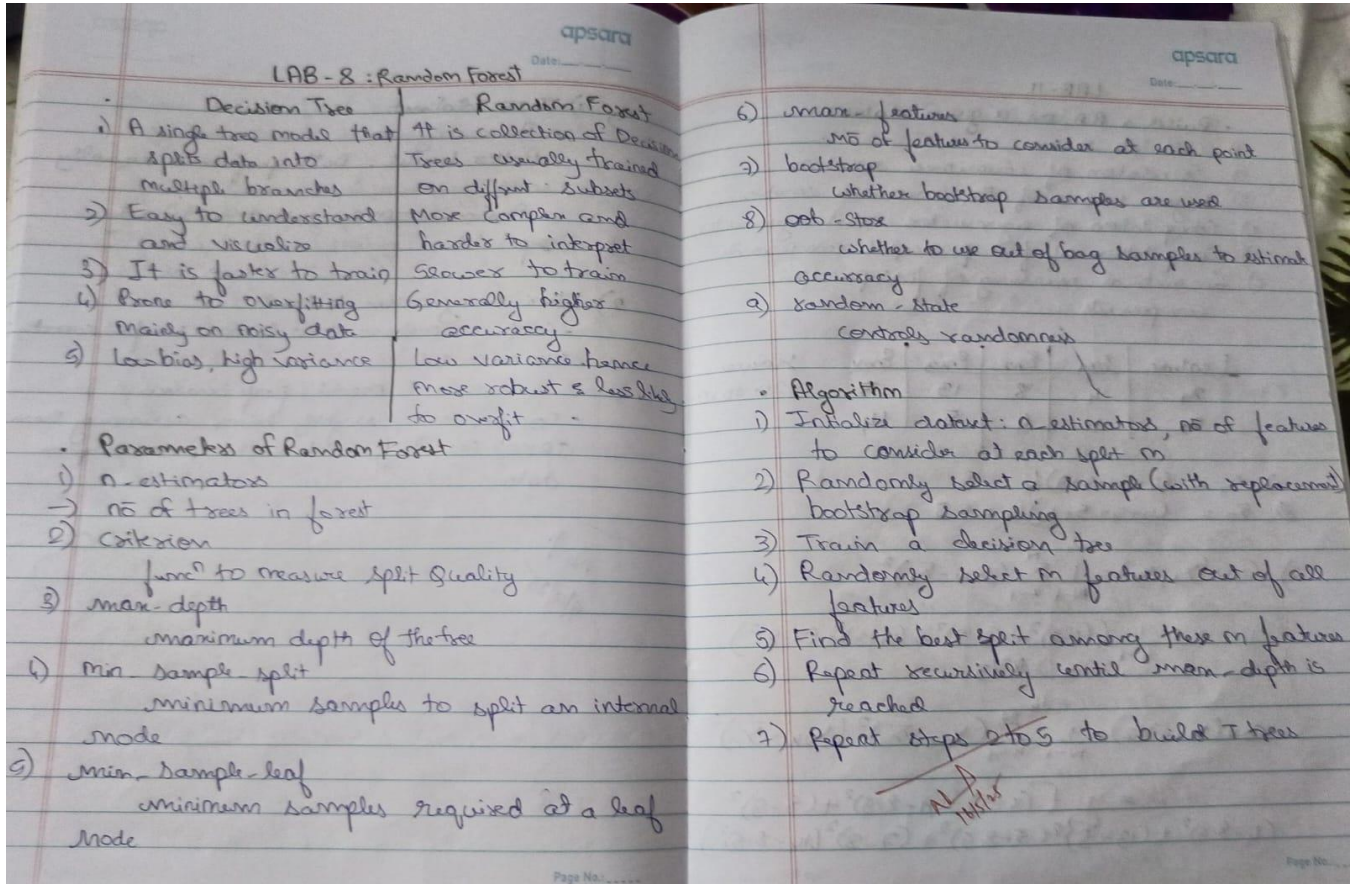 apsara
Date:
LAB-8 : Random Forest
Decision Tree
Random Forest
1) A single tree model that
splits data into
multiple branches
It is collection of Decision
Trees usually trained
on different subsets
2) Easy to understand
and visualize
More complex and
harder to interpret
3) It is faster to train
Slower to train
4) Prone to overfitting
mainly on noisy data
Generally higher
accuracy
5) Low bias, high variance
Low variance hence
more robust & less likely
to overfit
• Parameters of Random Forest
1) n-estimators
→ no of trees in forest
2) Criterion
funcn to measure split Quality
3) max-depth
maximum depth of the tree
4) min-sample-split
minimum samples to split an internal
node
5) min-sample-leaf
minimum samples required at a leaf
node
Page No.:
apsara
Date:
6) max-features
no of features to consider at each point
7) bootstrap
whether bootstrap samples are used
8) oob-store
whether to use out of bag samples to estimate
accurracy
9) random-state
controls randomness
• Algorithm
1) Intialize dataset: n_estimators, no of features
to consider at each split m
2) Randomly select a sample (with replacement)
bootstrap sampling
3) Train a decision tree
4) Randomly select m features out of all
features
5) Find the best split among these m features
6) Repeat recursively until max-depth is
reached
7) Repeat steps 2 to 5 to build T trees
16/5/25
Page No.